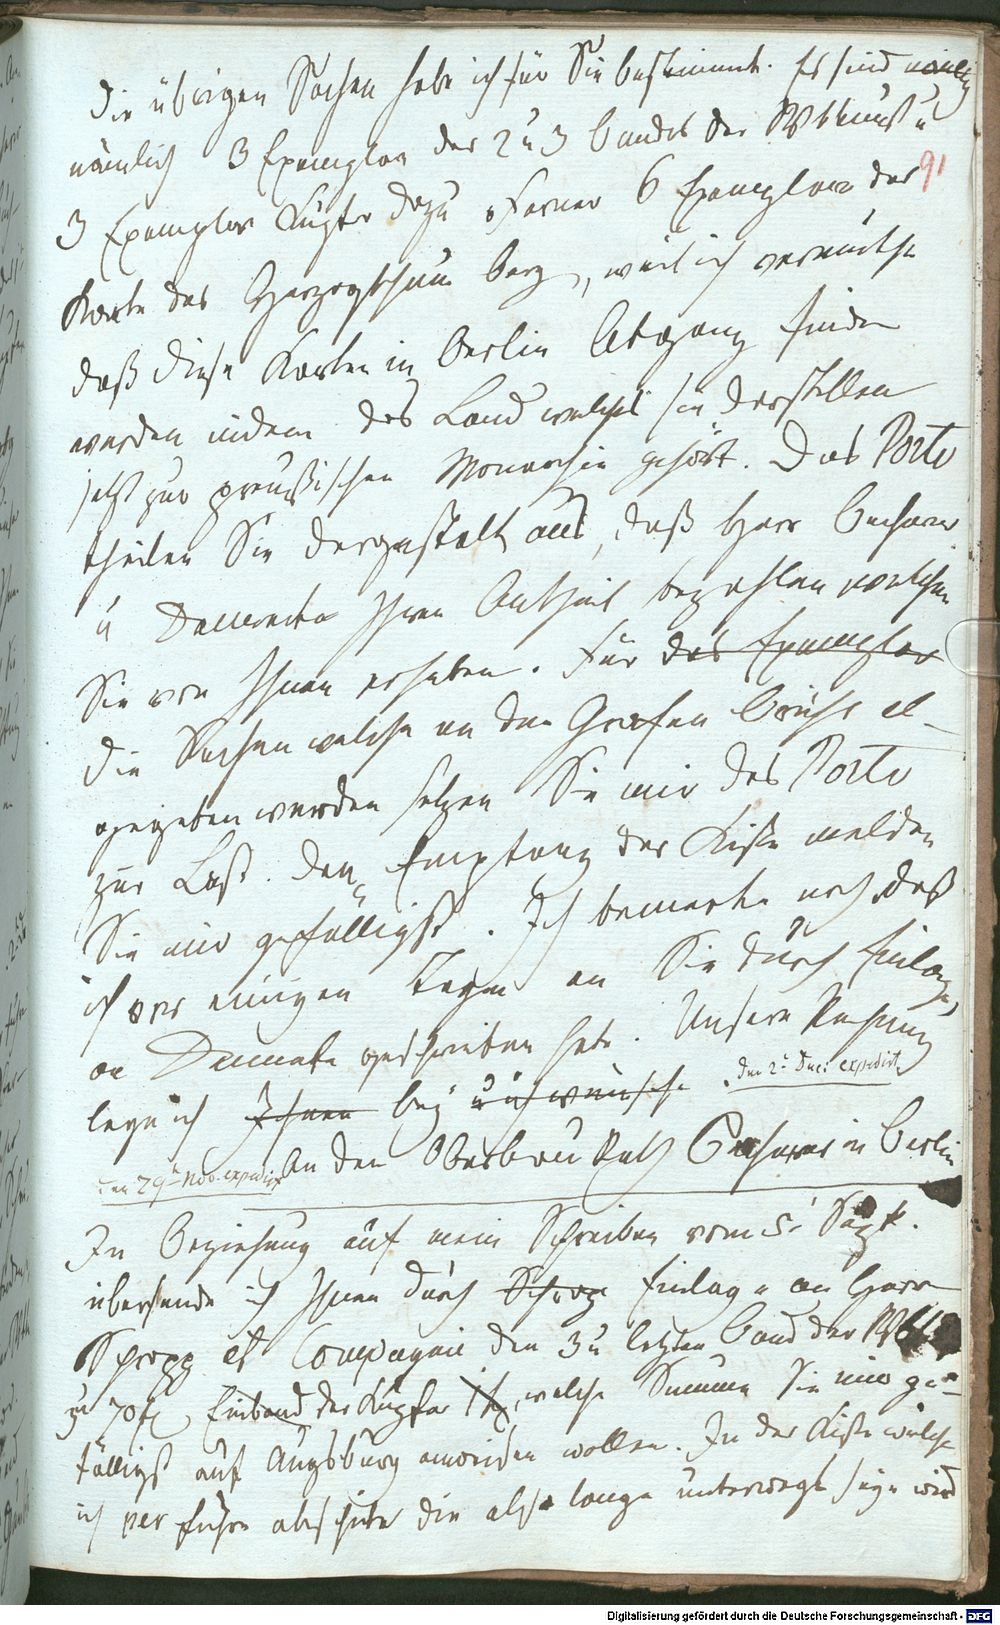 die übrigen Sachen habe ich für Sie bestimmt. Es sind
nämlich 3 Exemplar der 2 u 3 Bandes der WBkunst u
91
3 Exemplar Kupfer dazu Ferner 6 Exemplare der
Karte des Herzogthum Berg, weil ich vermuthe
daß diese Karten in Berlin Abgang finden
werden indem das Land welches sie darstellen
jetzt zur preußischen Monarchie gehört. Das Porto
theilen Sie dergestalt aus, daß Herr
u Ihren Antheil bezahlen welchen
Sie von Ihnen erheben. Für das Exemplar
die Sachen welche an den Grafen Brühl ab-
gegeben werden setzen Sie mir das Porto
zur Last. Den Empfang der Kiste melden
Sie mir gefälligst. Ich bemerke noch daß
ich vor einigen Tagen an Sie durch Einlage
an geschrieben habe. Unsere Rechnung
lege ich Ihnen bey u ich wünsche
den 2t expedirt
An den Oberbau Rath in Berlin
den 29t Nov. expedirt
In Beziehung auf mein Schreiben vom 5t Sept.
übersende ich Ihnen durch Schrop Einlage an Herrn
Schropp et Compagnie den 3 u letzten Band der WBK
zu 70 fl, Einband der Kupfer welche Summe Sie mir ge-
fälligst auf Augsburg anweisen wollen. In der Kiste welche
ich per Fuhre abschicke die also lange unterwegs seyn wird